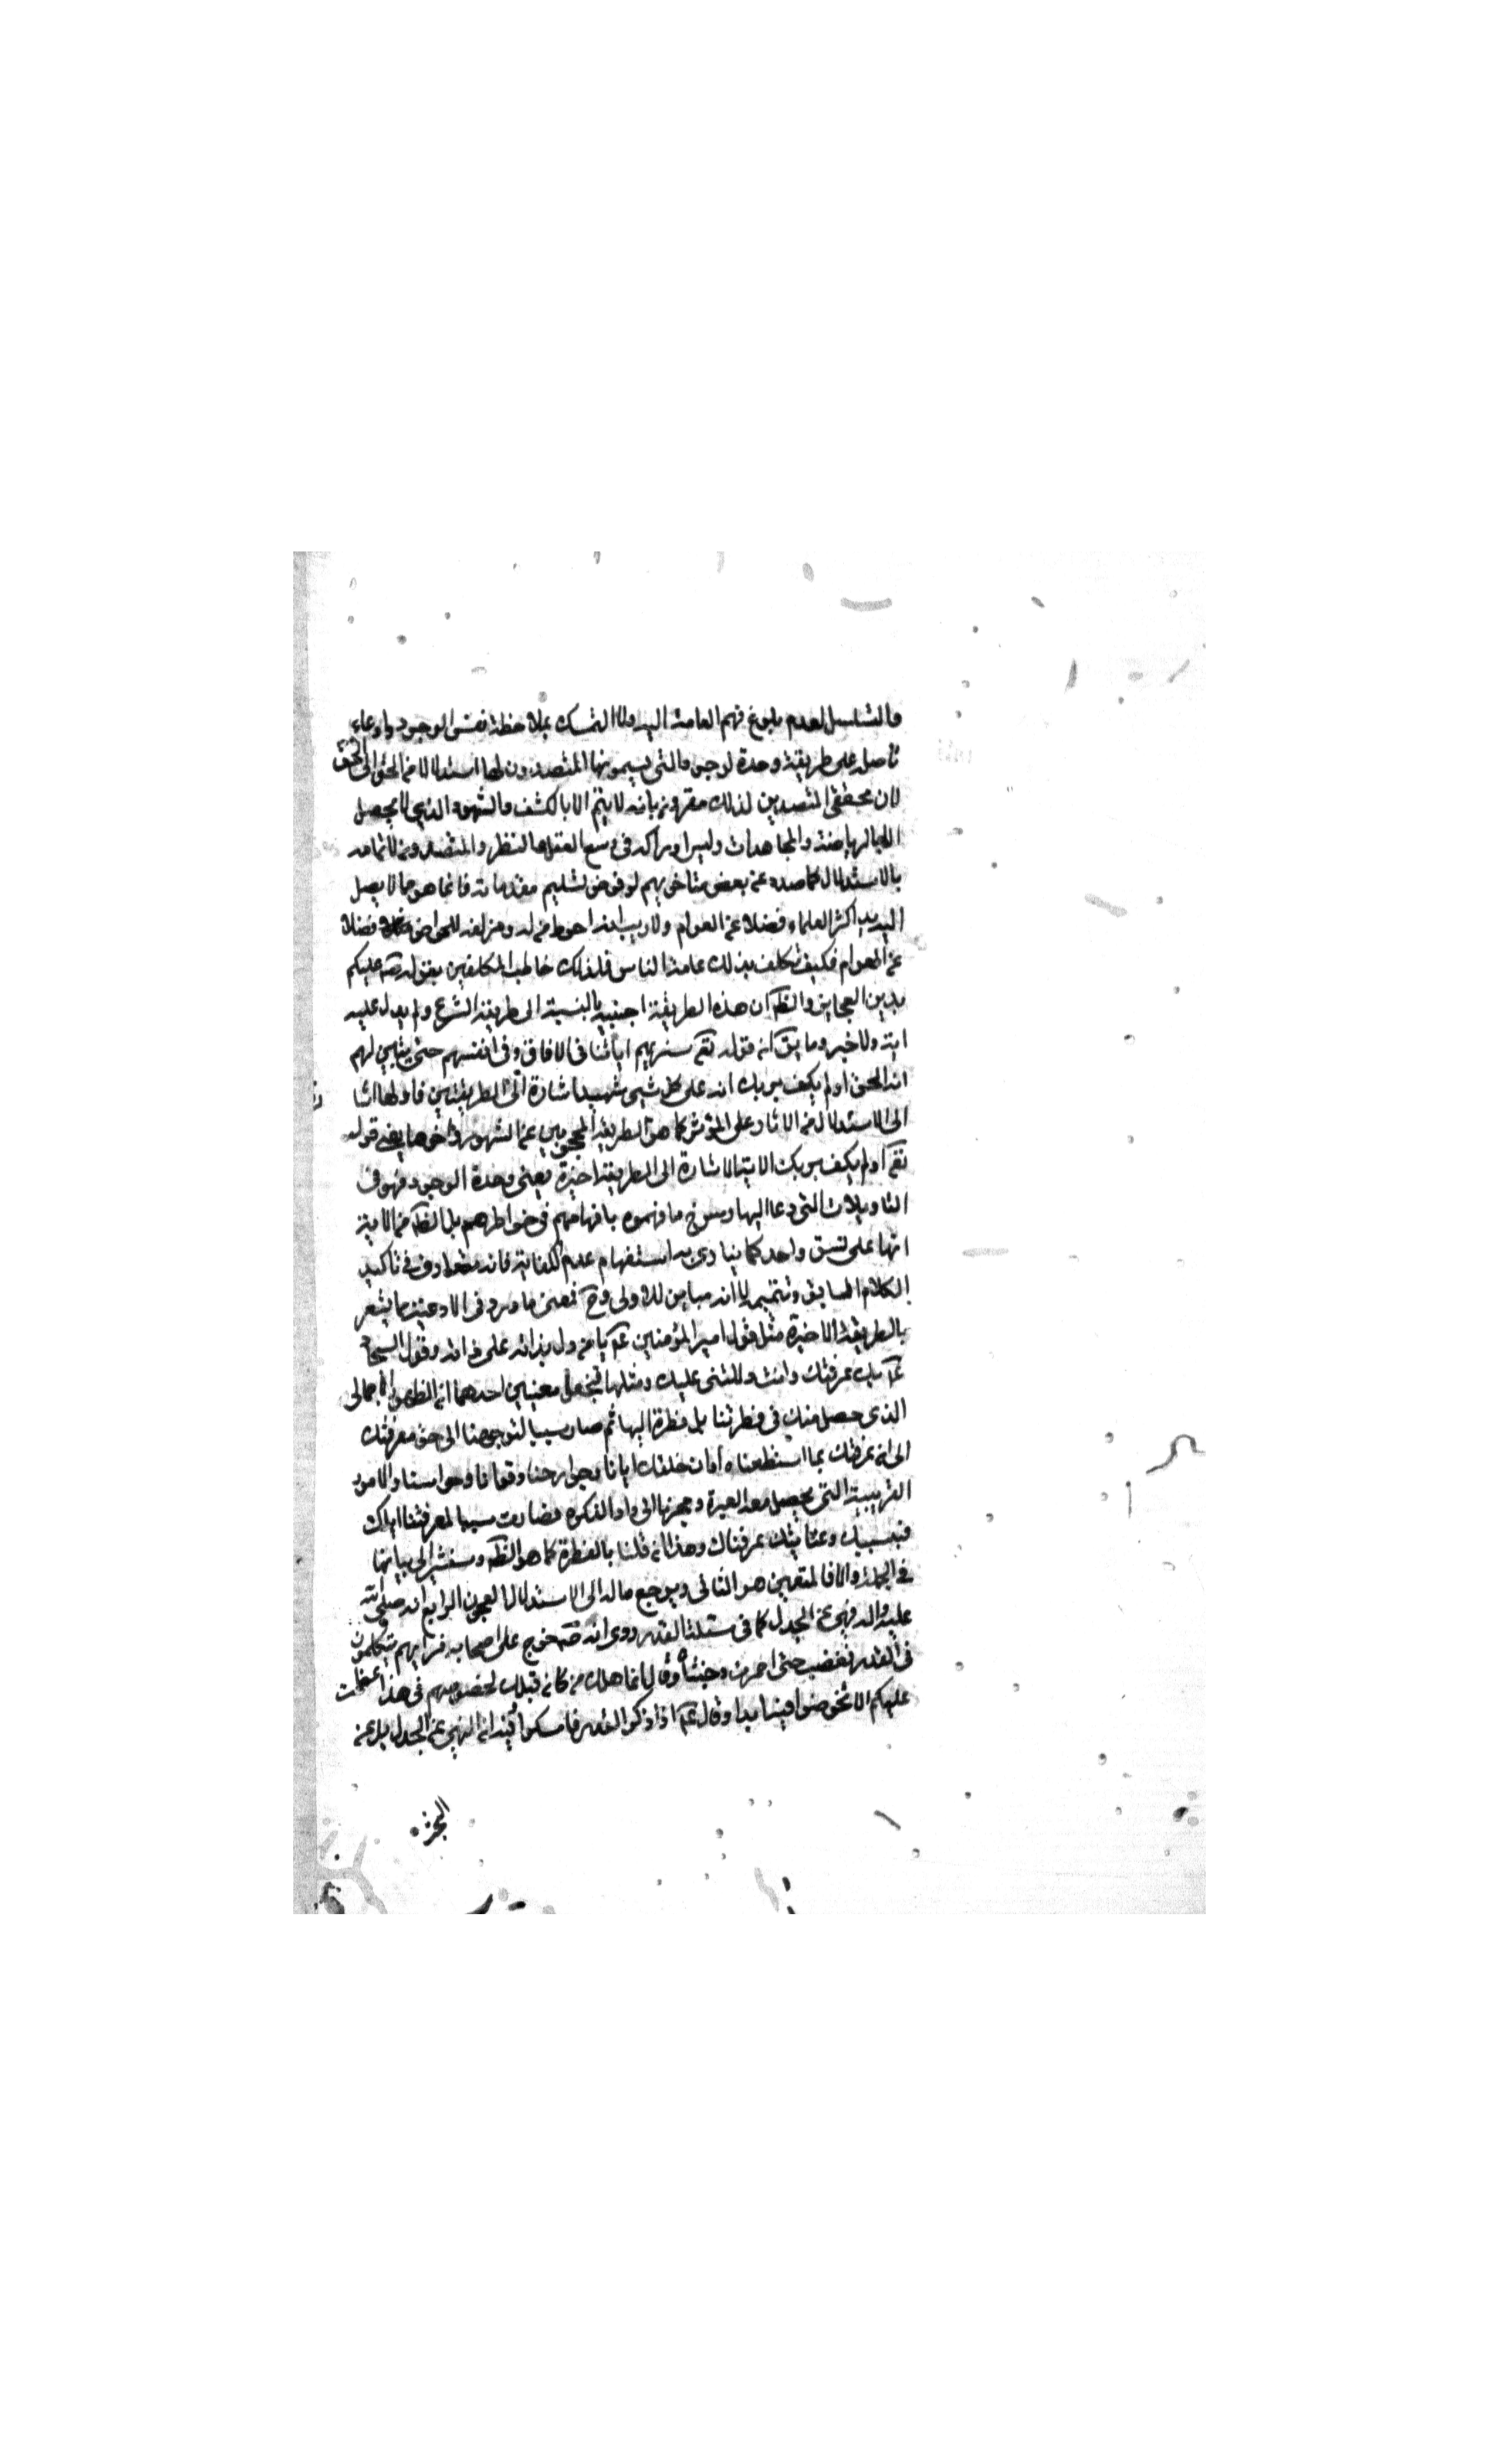 والتسلسل لعدم بلوغ فهم العامة اليه ولا التمسك بملاحظة نفس الوجود وادعاء
تأصل على طريقة وحدة لوجود التى يسمونها المتصدون لها استدلالا من الحق الى الحق
لان محققى المتصدين لذلك مقرون بانه لا يتم الا بالكشف والشهود الذى لا يحصل
الا بالرياضة والمجاهدات وليس ادراكه فى وسع العقل والنظر والمتصدون لاتمامه
بالاستدلال كما صدر عن بعض متاخريهم لو فرض تسليم مقدماته فانما هو مما لا يصل
اليه يد اكثر العلماء فضلا عن العوام ولا ريب انه احوط من له ومزلقة للخواص فضلا
عن العوام فكيف تكلف بذلك عامة الناس فلذلك خاطب المكلفين بقوله صه عليكم
بدين العجايز والظه ان هذه الطريقة اجنبية بالنسبة الى طريقة الشرع ولم يدل عليه
اية ولا خبر وما يق ان قوله تعه سنريهم اياتنا فى الافاق وفى انفسهم حتى يتبين لهم
انه الحق اولم يكف بربك انه على كل شىء شهيد اشارة الى الطريقتين فاولها اشا
الى الاستدلال من الاثار على المؤثر كما هو الطريقة المحجوبين عن الشهود واخرها يعنى قوله
تعه اولم يكف بربك الاية الاشارة الى الطريقة اخيرة يعنى وحدة الوجود فهو فى
التاويلات التى دعا اليها رسوخ ما فهموه بافهامهم فى خواطرهم بل الظه من الاية
انها على نسق واحد كما ينادى به استفهام عدم الكفاية فانه متعارف فى تاكيد
الكلام السابق وتتميم لا انه مباين للاولى وح فمعنى ما ورد فى الادعية مما يشعر
بالطريقة الاخيرة مثل قول امير المؤمنين عه يا من دل بذاته على ذاته وقول السجاد
عه بك عرفتك وانت دللتنى عليك ومثلها فيحمل معنيين احدهما ان الظهور الاجمالى
الذى حصل منك فى فطرتنا بل فطرة البهائم صار سببا لتوجهنا الى حق معرفتك
الى ان عرفتك بما استطعناه فان خلقك ايانا وجوارحنا وقوانا وحواسنا والامور
الغريبة التى يحصل معه العبرة وعجزنا الى ذا والفكره فصارت سببا لمعرفتنا اياك
فبسببك وعنايتك عرفناك وهذا ان قلنا بالفطرة كما هو الظه وسنشير الى بيانها
فى الجملة والا فالمتعين هو الثانى ويرجع ماله الى الاستدلال العجون الرابع انه صلى الله
عليه واله نهى عن الجدل كما فى مسئلة القدر روى انه صه خرج على اصحابه فراهم يتكلمون
فى القدر فغضب حتى احمرت وجنتاه وقال انما هلك من كان قبلك لخوضهم فى هذا عزمت
عليكم الا تخوضوا فيه ابدا وقال عه اذا ذكر القدر فامسكوا فيه ان النهى عن الجدل بل عن